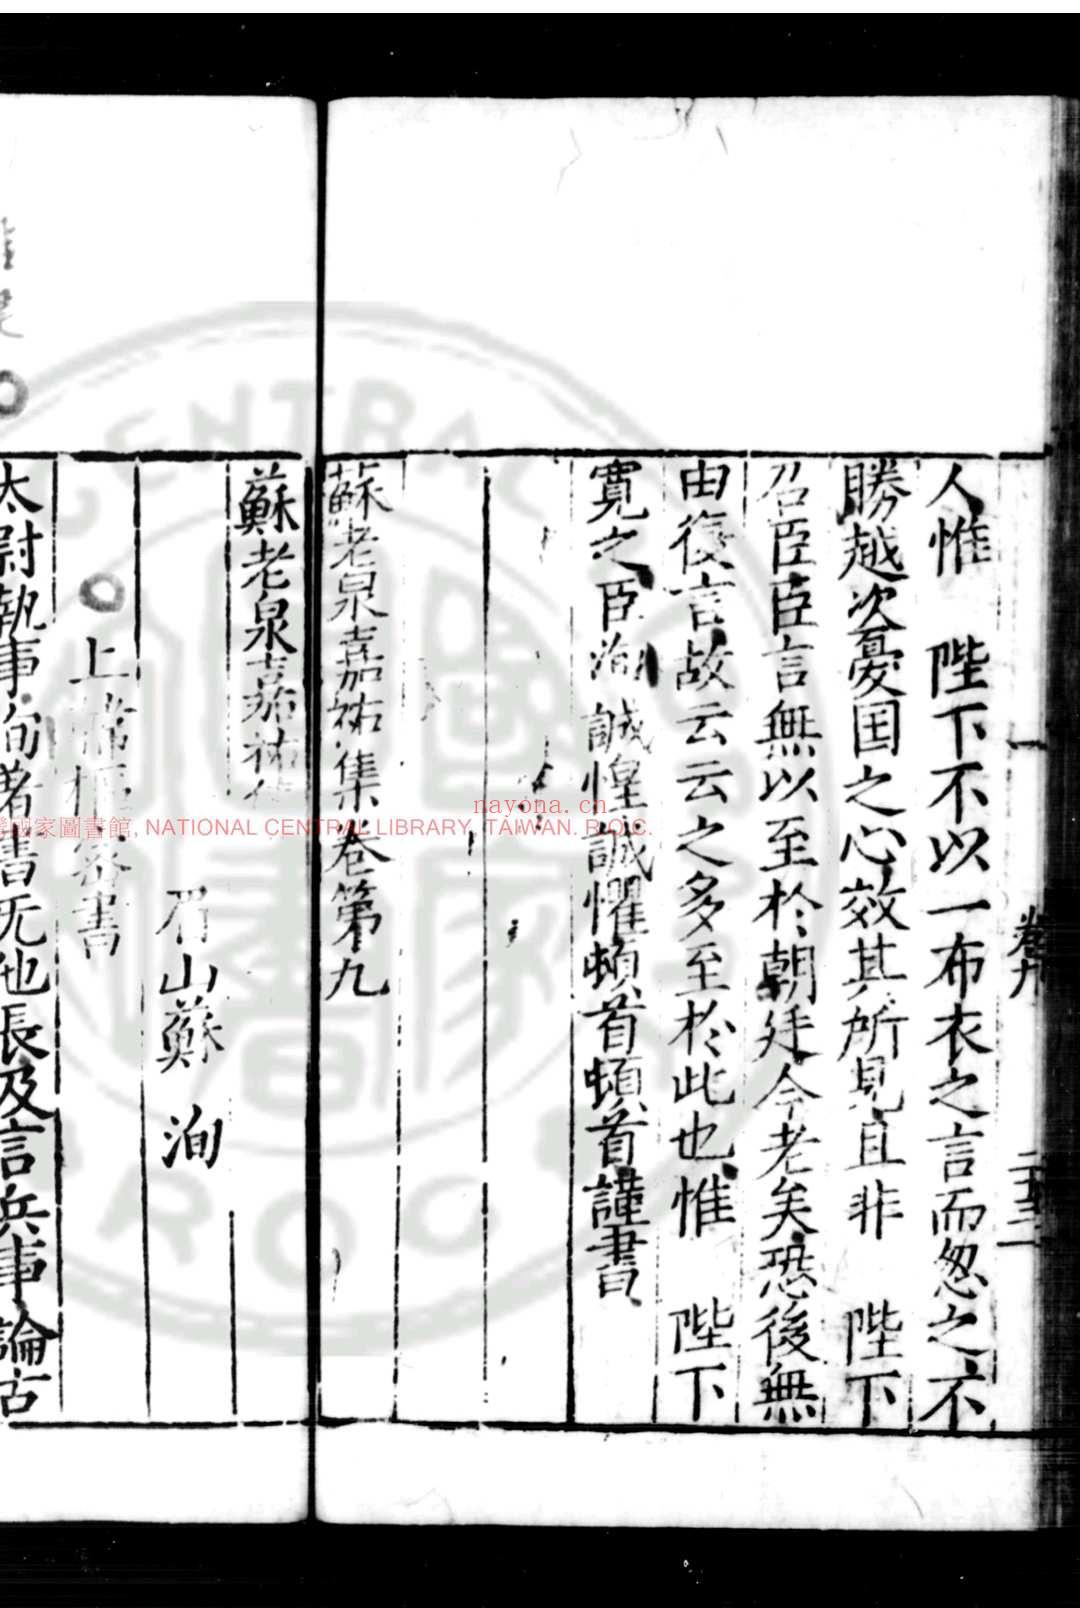 卷九
二十二
人惟　陛下不以一布衣之言而忽之不
勝越次憂国之心效其所見且非　陛下
召臣臣言無以至於朝廷今老矣恐後無
由復言故云云之多至於此也惟　陛下
寛之臣洵誠惶誠懼頓首頓首謹書
蘇老泉嘉祐集卷第九
蘇老泉嘉祐
眉山蘇　洵
上韓樞密書
太尉執事洵著書无他長及言兵事論古
nayona.cn
國家圖書館, NATIONAL CENTRAL LIBRARY, TAIWAN. R.O.C.
CENTRAL
ROC